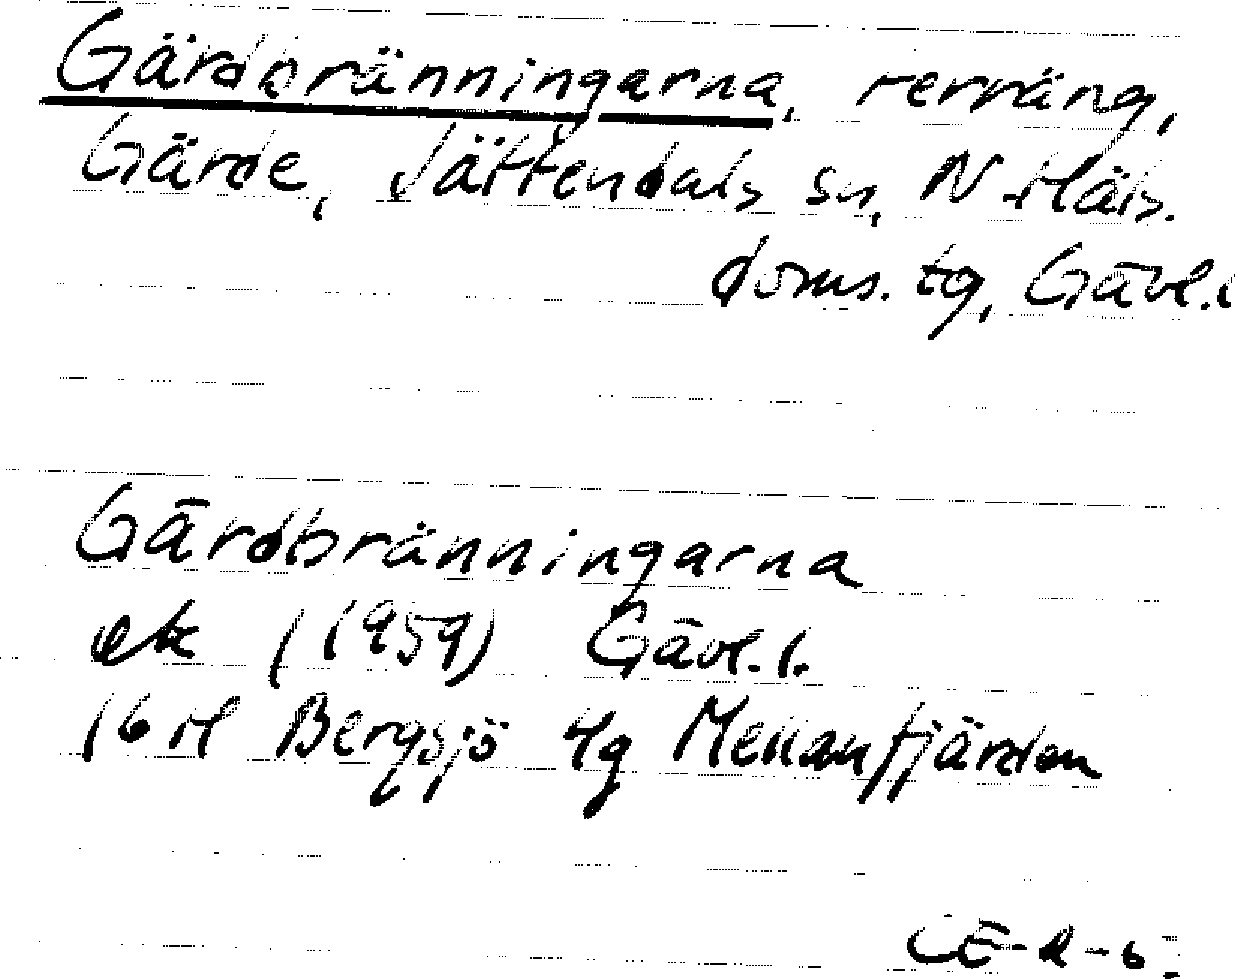 Gärdbränningarna, terräng,
Gärde, Jättendals sn, N Häls.
doms. tg, Gävl. l
Gärdbränningarna
ek (1959) Gävl. l.
16 H Bergsjö 4g Mellanfjärden